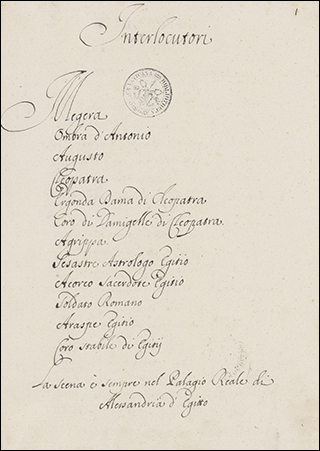 Interlocutori
1
Megera
Ombra d'Antonio
Augusto
Cleopatra
Ergonda Dama di Cleopatra
Coro di Damigelle di Cleopatra
Agrippa
Sesastre Astrologo Egitio
Acoreo Sacerdote Egitio
Soldato Romano
Araspe Egitio
Coro stabile di Egitij
La Scena è sempre nel Palagio Reale di
Alessandria d'Egitto